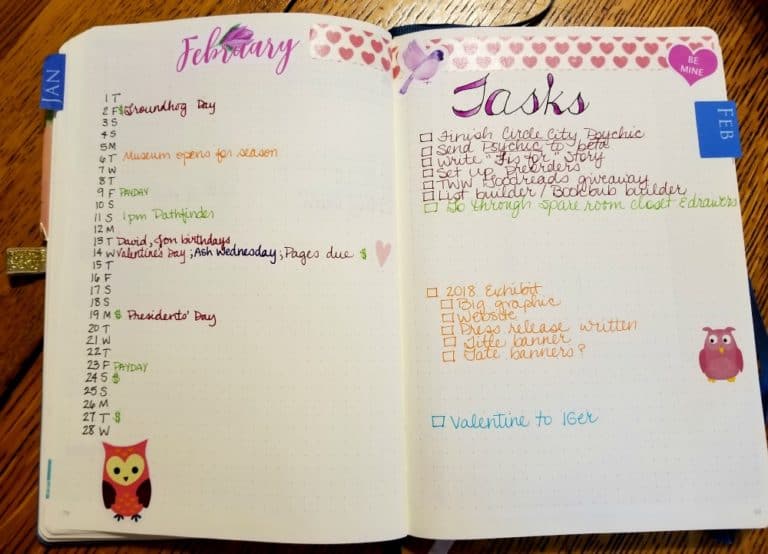 February
JAN
1 T
2 F $ Groundhog Day
3 S
4 S
5 M
6 T Museum opens for season
7 W
8 T
9 F PAYDAY
10 S
11 S 1pm Pathfinder
12 M
13 T David, Jon birthdays
14 W Valentine's Day; Ash Wednesday; Pages due $
15 T
16 F
17 S
18 S
19 M $ Presidents' Day
20 T
21 W
22 T
23 F PAYDAY
24 S $
25 S
26 M
27 T $
28 W
BE
MINE
Tasks
FEB
Finish Circle City Psychic
Send Psychic to beta
Write "Is for" Story
Set up Preorders
TWW Goodreads giveaway
List builder / Bookbub builder
Go through spare room closet & drawers
2018 Exhibit
Big graphic
Website
Press release written
Title banner
Gate banners?
Valentine to IGer